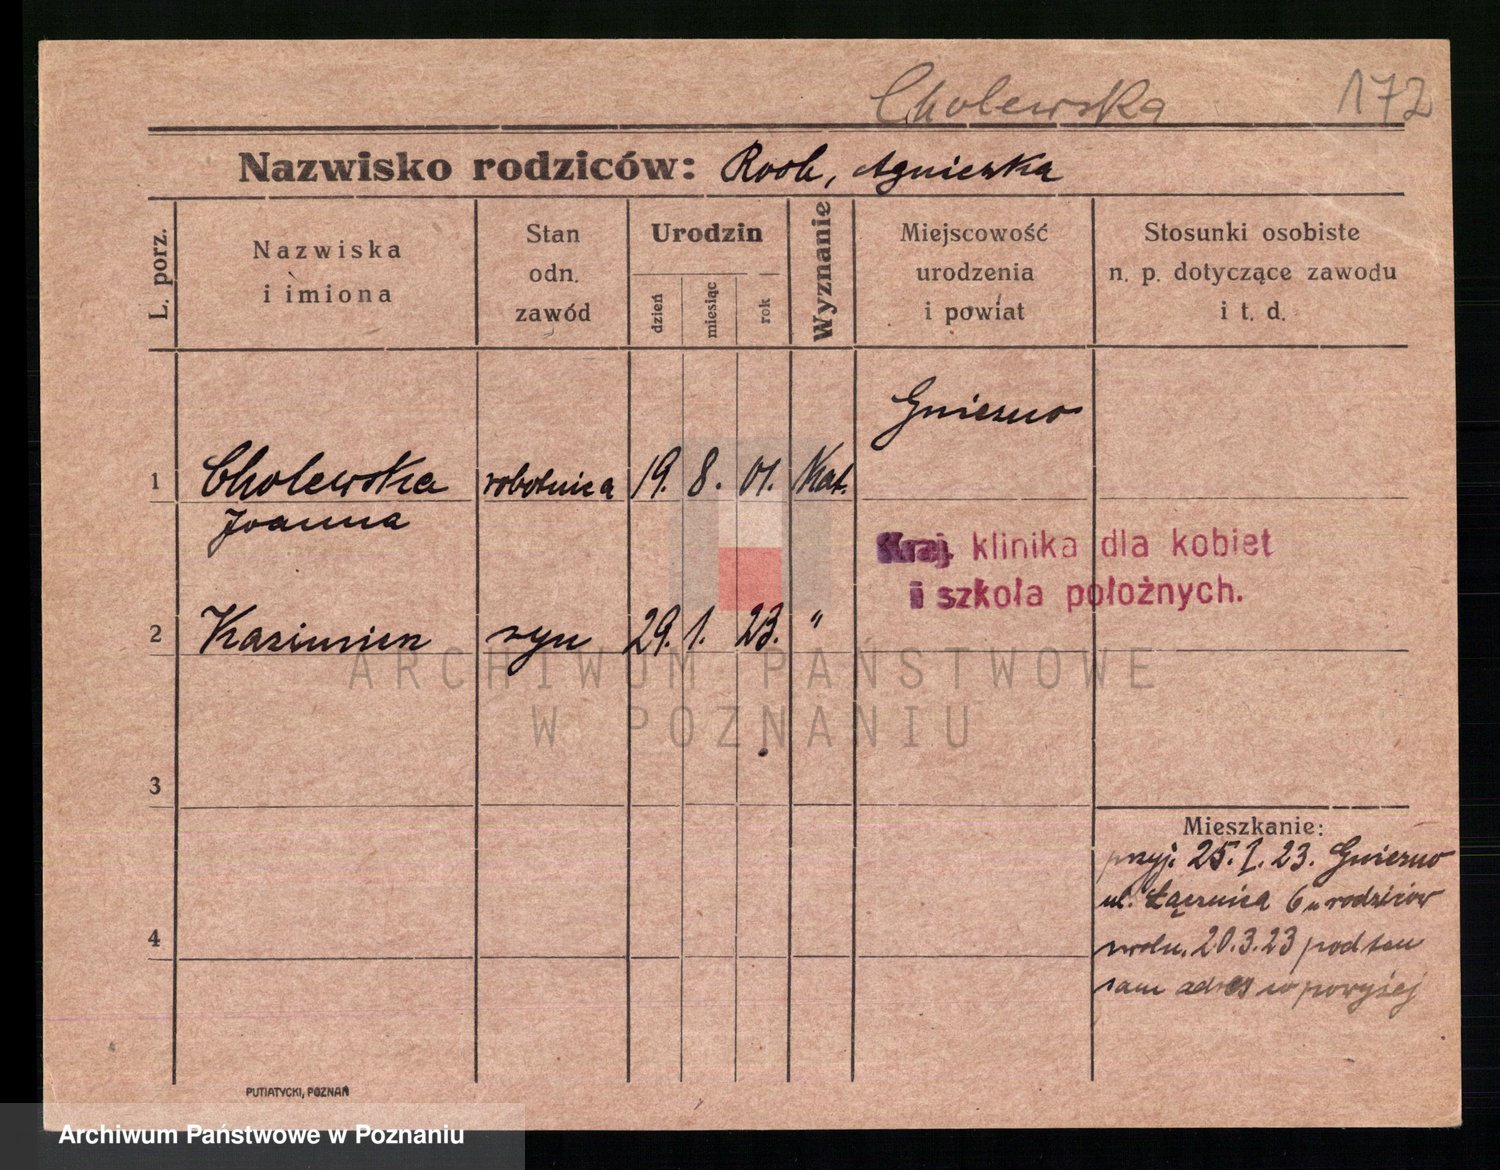 Cholewska 172
Nazwisko rodziców: Rosh, Agnieszka
L. porz.
Nazwiska
i imiona
Stan
odn.
zawód
Urodzin
dzień
miesiąc
rok
Wyznanie
Miejscowość
urodzenia
i powiat
Stosunki osobiste
n. p. dotyczące zawodu
i t. d.
Gniezno
1 Cholewska robotnica 19. 8. 01. Kat.
Joanna
Kraj. klinika dla kobiet
i szkoła położnych.
2 Kazimierz syn 29. 1. 23. "
ARCHIWUM PAŃSTWOWE
W POZNANIU
3
Mieszkanie:
przyj. 25. 1. 23. Gniezno
ul. Łącznica 6 u rodziców
zwoln. 20.3.23 pod ten
4
sam adres w powyżej
PUTIATYCKI, POZNAŃ
Archiwum Państwowe w Poznaniu